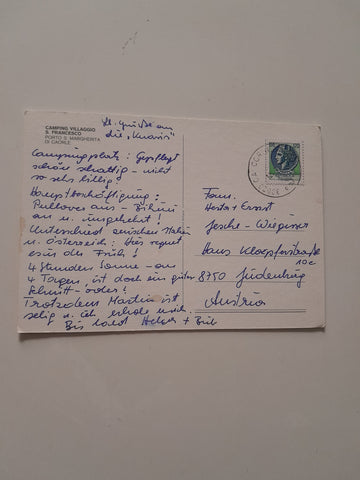 CAMPING VILLAGGIO
S. FRANCESCO
PORTO S. MARGHERITA
DI CAORLE
lb. Grüße an
die „Knaxis"
Campingplatz: Gepflegt
schön schattig - nicht
so sehr billig
Hauptbeschäftigung:
Pullover aus - Bikini
an u. umgekehrt!
Unterschied zwischen Italien
u. Österreich: Hier regnet
es in der Früh!
4 Stunden Sonne - an
4 Tagen, ist doch ein guter
Schnitt - oder!
Trotzdem Martin ist
selig u. ich erhole mich.
Bis bald
Fam.
Herta + Ernst
Jesche -
Hans Kloepferstraße
10c
8750 Judenburg
Austria